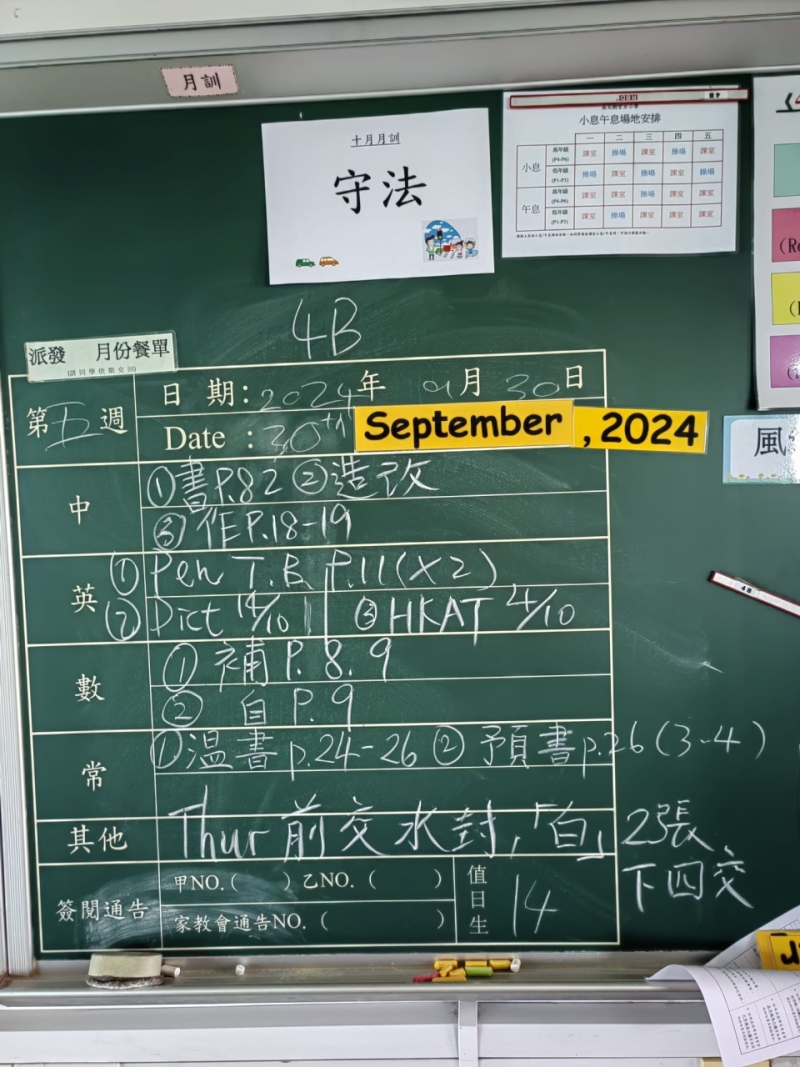 月訓
十月月訓
守法
小息午息場地安排
一 二 三 四 五
小息
高年級 (P4-P6) 課室 操場 課室 操場 課室
低年級 (P1-P3) 操場 課室 操場 課室 操場
午息
高年級 (P4-P6) 課室 課室 操場 課室 課室
低年級 (P1-P3) 課室 操場 課室 操場 課室
4B
派發 月份餐單
第五週
日期: 2024年 9月 30日
Date : 30th September , 2024
風
中
①書P.82 ②造改
③作P.18-19
英
① Pen T.B P.11(×2)
② Dict 14/10 ③ HKAT 4/10
4B
數
① 補 P. 8. 9
② 自 P. 9
常
①溫書 p.24-26 ② 預書p.26(3-4)
其他
Thur 前交水封,「白」2張
下四交
簽閱通告
甲NO.( ) 乙NO. ( )
家教會通告NO. ( )
值日生
14